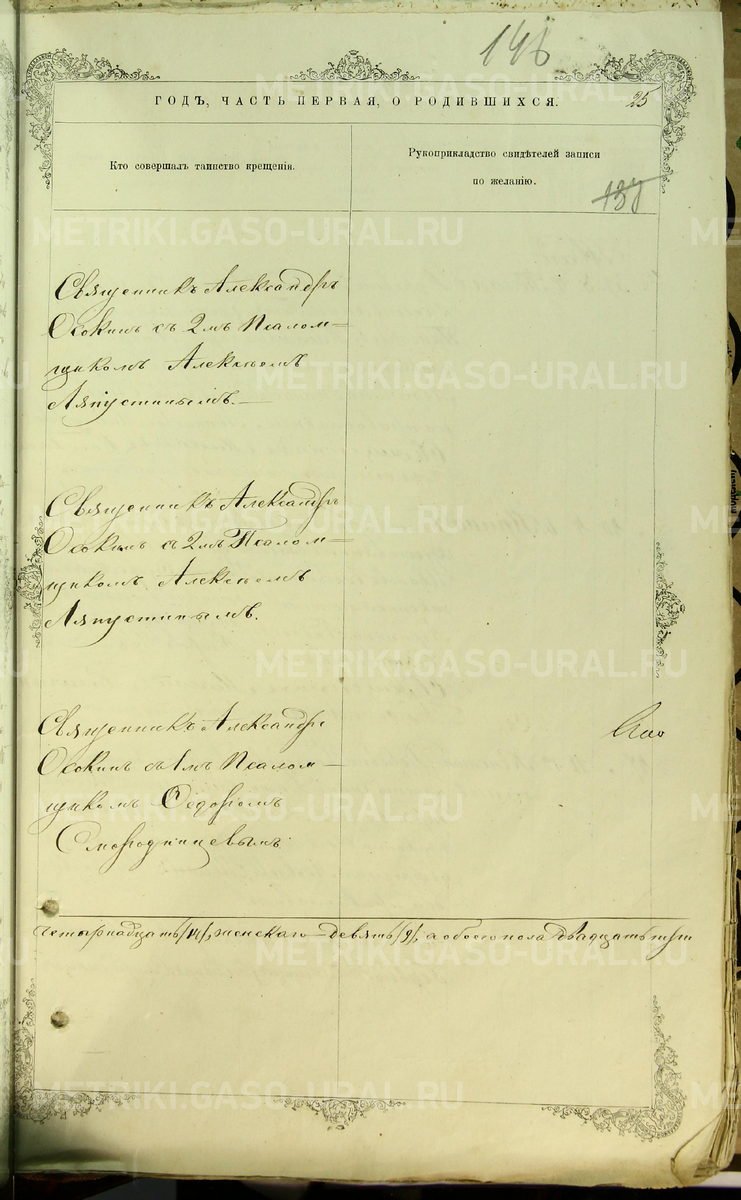 146
ГОДЪ, ЧАСТЬ ПЕРВАЯ, О РОДИВШИХСЯ. 25
Кто совершалъ таинство крещенія.
Рукоприкладство свидѣтелей записи
по желанію.
137
Священникъ Александръ
Осокинъ съ 2мъ Псалом-
щикомъ Алексѣемъ
Ляпустинымъ.
Священникъ Александръ
Осокинъ съ 2мъ Псалом-
щикомъ Алексѣемъ
Ляпустинымъ.
Священникъ Александръ
Осокинъ съ 1мъ Псалом-
щикомъ Ѳедоромъ
Смородинцевымъ
четырнадцать /14/, женскаго - девять /9/, а обоего пола двадцать три
METRIKI.GASO-URAL.RU